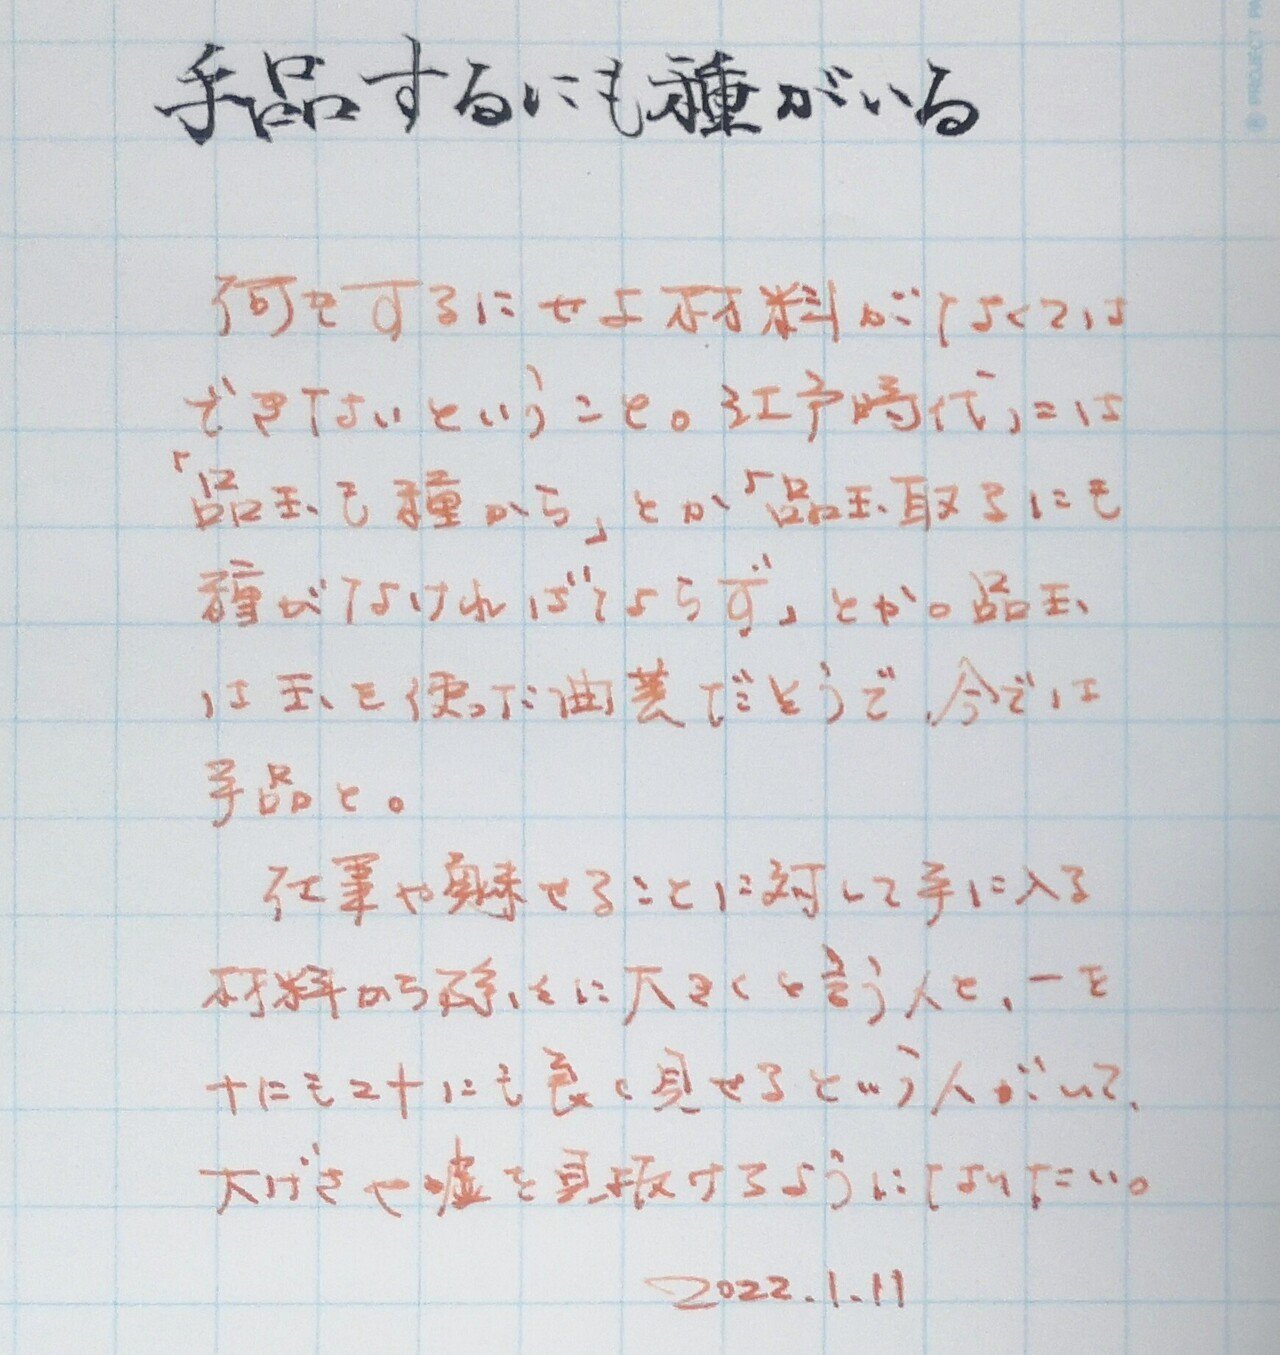 手品するにも種がいる
何をするにせよ材料がなくては
できないということ。江戸時代には
「品玉も種から」とか「品玉取るにも
種がなければならず」とか。品玉
は玉を使った曲芸だそうで、今では
手品と。
仕事や魅せることに対して手に入る
材料から 大きくと言う人と、一を
十にも二十にも良く見せるという人がいて、
大げさや嘘を見抜けるようになりたい。
2022.1.11
PROJECT PA